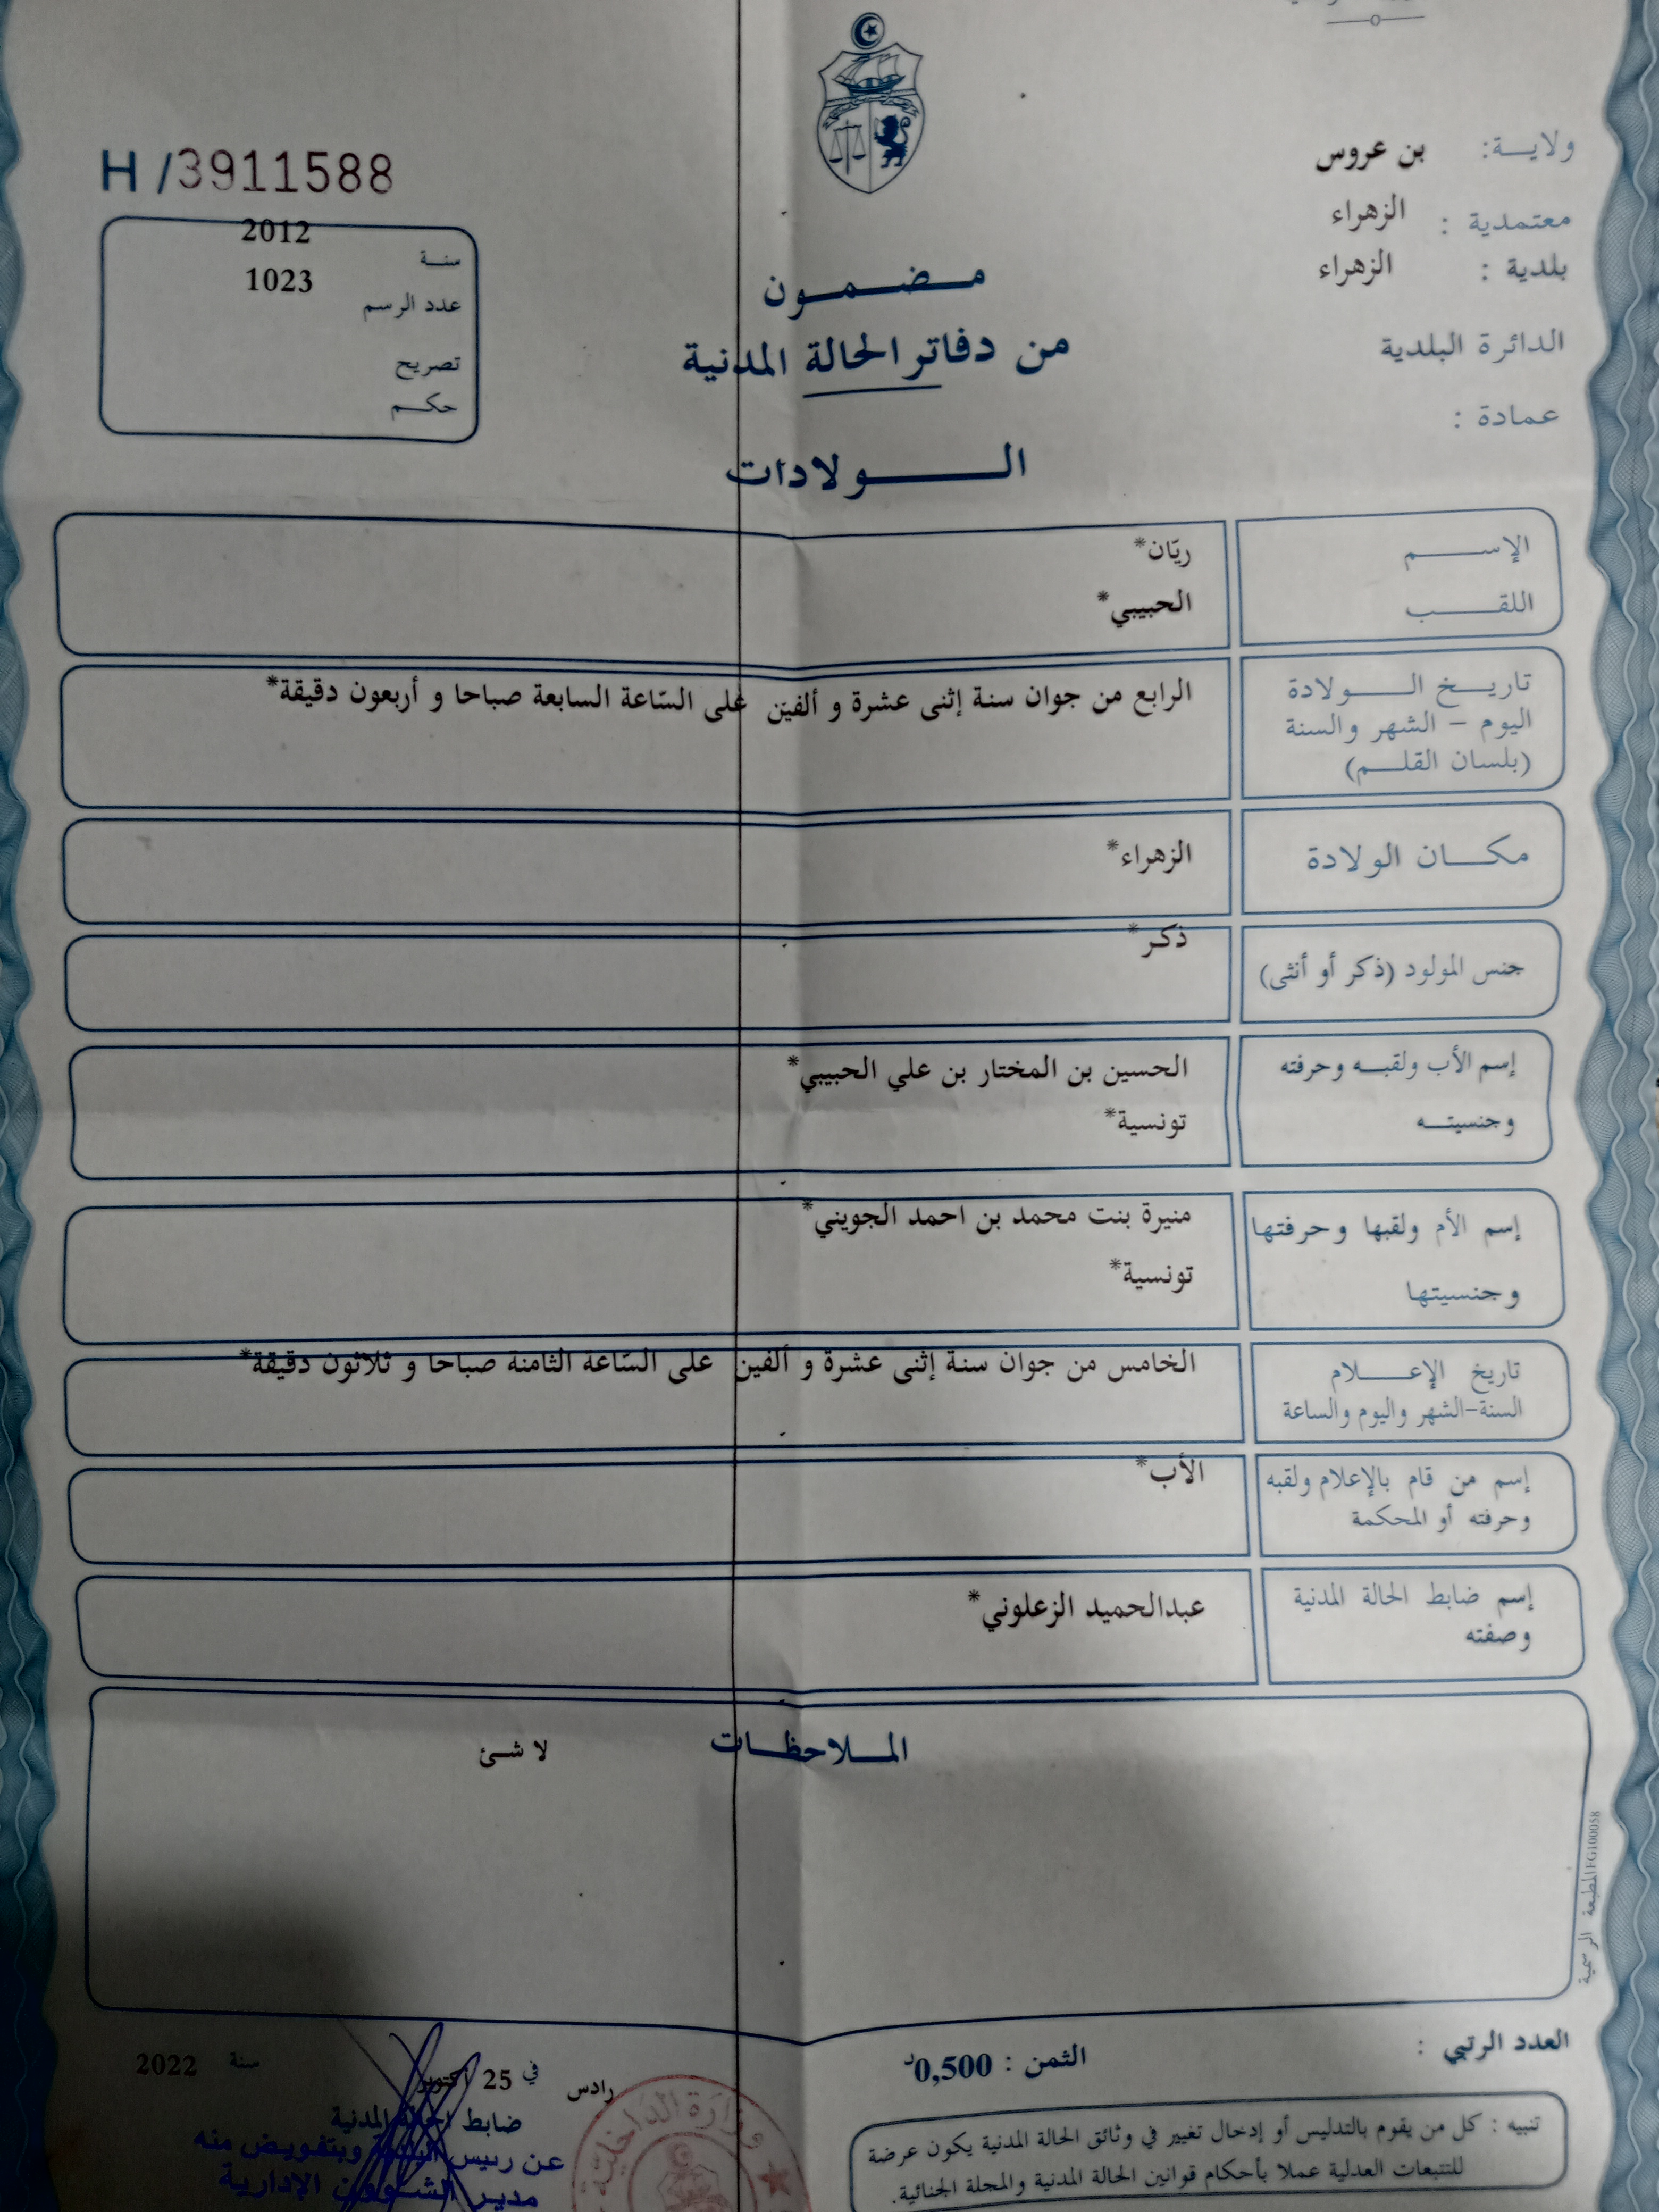 ولايـــة: بن عروس
معتمدية : الزهراء
بلدية : الزهراء
الدائرة البلدية
عمادة :
H /3911588
سنـة 2012
عدد الرسم 1023
تصريح
حكـم
مـضـمـون
من دفاتر الحالة المدنية
الـــولادات
الإســـم ريّان*
اللقـــب الحبيبي*
تاريـخ الـــولادة
اليوم - الشهر والسنة
(بلسان القلـــم)
الرابع من جوان سنة إثنى عشرة و ألفين على السّاعة السابعة صباحا و أربعون دقيقة*
مكـــان الولادة الزهراء*
جنس المولود (ذكر أو أنثى) ذكر*
إسم الأب ولقبـه وحرفته الحسين بن المختار بن علي الحبيبي*
وجنسيتـــه تونسية*
إسم الأم ولقبها وحرفتها منيرة بنت محمد بن احمد الجويني*
وجنسيتها تونسية*
تاريخ الإعـــلام الخامس من جوان سنة إثنى عشرة و ألفين على السّاعة الثامنة صباحا و ثلاثون دقيقة*
السنة-الشهر واليوم والساعة
إسم من قام بالإعلام ولقبه الأب*
وحرفته أو المحكمة
إسم ضابط الحالة المدنية عبدالحميد الزعلوني*
وصفته
المـلاحظـات لا شئ
المطبعة الرسمية FG100058
العدد الرتبي :
الثمن : 0,500د
رادس في 25 أكتوبر سنة 2022
ضابط الحالة المدنية
عن رئيس البلدية وبتفويض منه
مدير الشؤون الإدارية
وزارة الداخلية
تنبيه : كل من يقوم بالتدليس أو إدخال تغيير في وثائق الحالة المدنية يكون عرضة
للتتبعات العدلية عملا بأحكام قوانين الحالة المدنية والمجلة الجنائية.